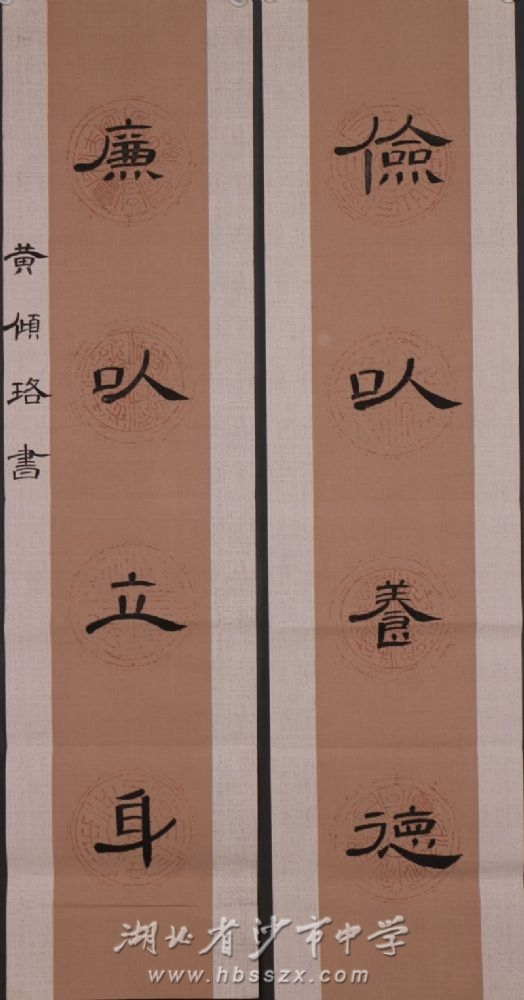 儉以養德
廉以立身
黄傾珞書
湖北省沙市中学
www.hbsszx.com